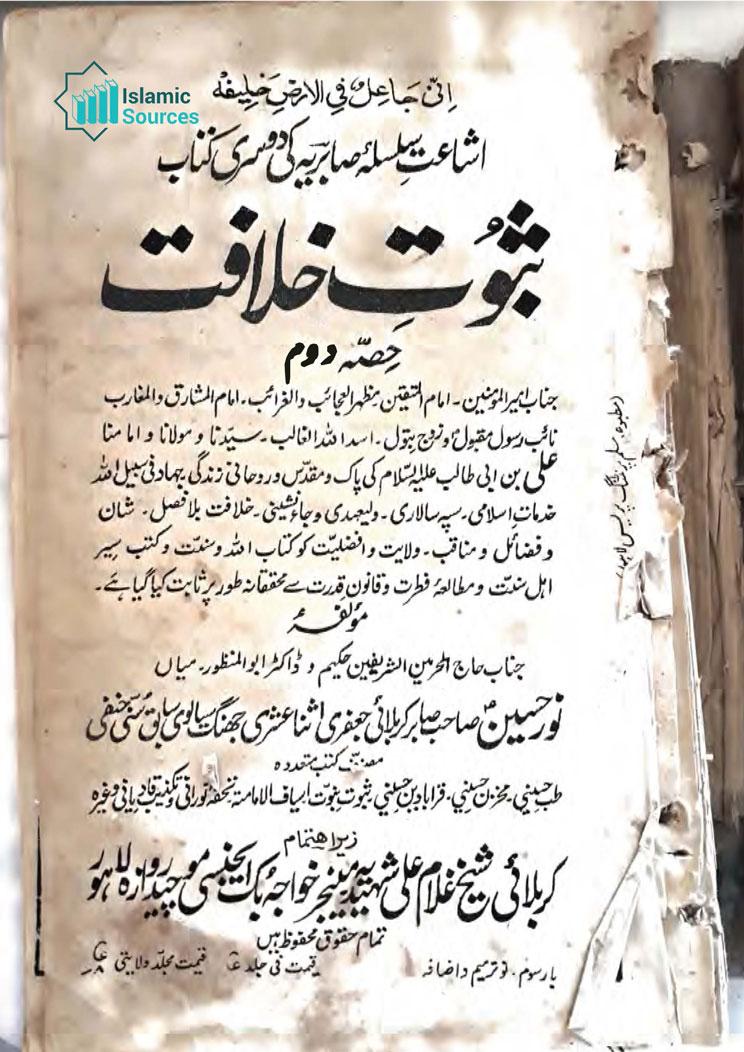 Islamic
Sources
اِنّی جَاعِلٌ فِی الارضِ خَلِیفه
اشاعتِ سلسلۂ صابریہ کی دوسری کتاب
ثبُوتِ خلافت
حِصّہ دوم
جناب امیرالمؤمنین۔ امام المتقین مظہر العجائب والغرائب۔ امام المشارق والمغارب
نائب رسول مقبولؐ و زوج بتول۔ اسد اللہ الغالب۔ سیّدنا و مولانا و امامنا
علی بن ابی طالب علیہ السلام کی پاک و مقدّس و روحانی زندگی جہاد فی سبیل اللہ
خدماتِ اسلامی۔ سپہ سالاری۔ ولیعہدی و جانشینی۔ خلافت بلافصل۔ شان
و فضائل و مناقب۔ ولایت و افضلیّت کو کتاب اللہ و سنّت و کتب سیر
اہل سنّت و مطالعۂ فطرت و قانونِ قدرت سے محققانہ طور پر ثابت کیا گیا ہے۔
مؤلفۂ
جناب حاج الحرمین الشریفین حکیم و ڈاکٹر ابوالمنظور۔ میاں
نور حسین صاحب صابر کربلائی جعفری اثنا عشری جھنگ سیالوی سابق سنّی حنفی
مصنّف کتب متعددہ
طب حسینی۔ مخزن حسینی۔ قرابادین حسینی۔ ثبوت نبوّت اسیاف الامامتہ تحفۂ نورانی و تکذیب قادیانی وغیرہ
زیر اھتمام
کربلائی شیخ غلام علی شہیدیہ مینجر خواجہ بک ایجنسی موچیدروازہ لاہور
تمام حقوق محفوظ ہیں
بار سوم۔ نو ترمیم و اضافہ قیمت فی جلد قیمت مجلد ولایتی
(مطبوعہ مسلم پرنٹنگ پریس لاہور)